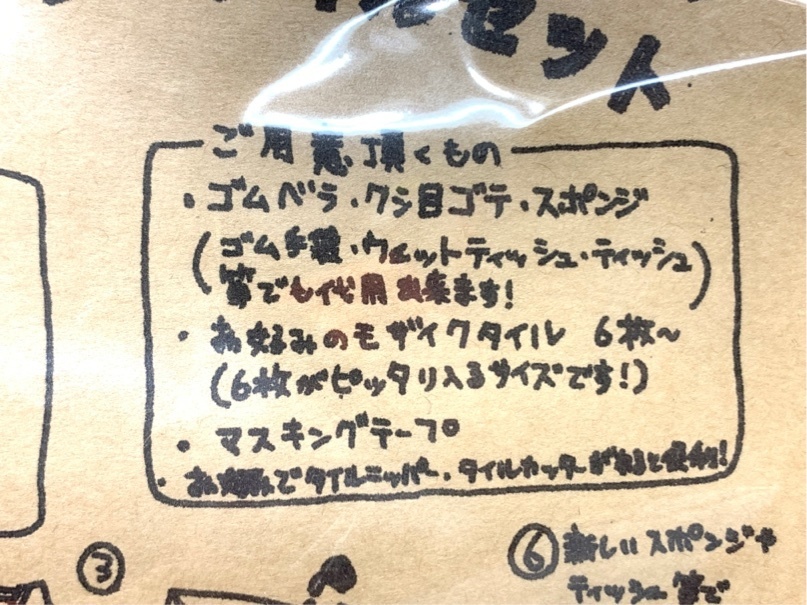 ルセット
ご用意頂くもの
・ゴムベラ・クシ目ゴテ・スポンジ
(ゴム手袋・ウェットティッシュ・ティッシュ
等でも代用出来ます!)
・お好みのモザイクタイル 6枚~
(6枚がピッタリ入るサイズです!)
・マスキングテープ
・お好みでタイルニッパー・タイルカッターがあると便利!
③
⑥新しいスポンジや
ティッシュ等で